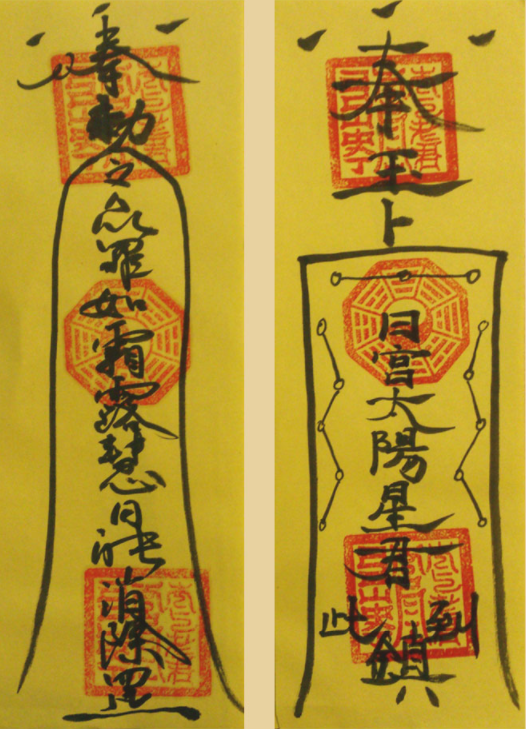 奉勅之众罪如霜露慧日能消除罡
奉玉卜
日宮太陽星君
到此鎮